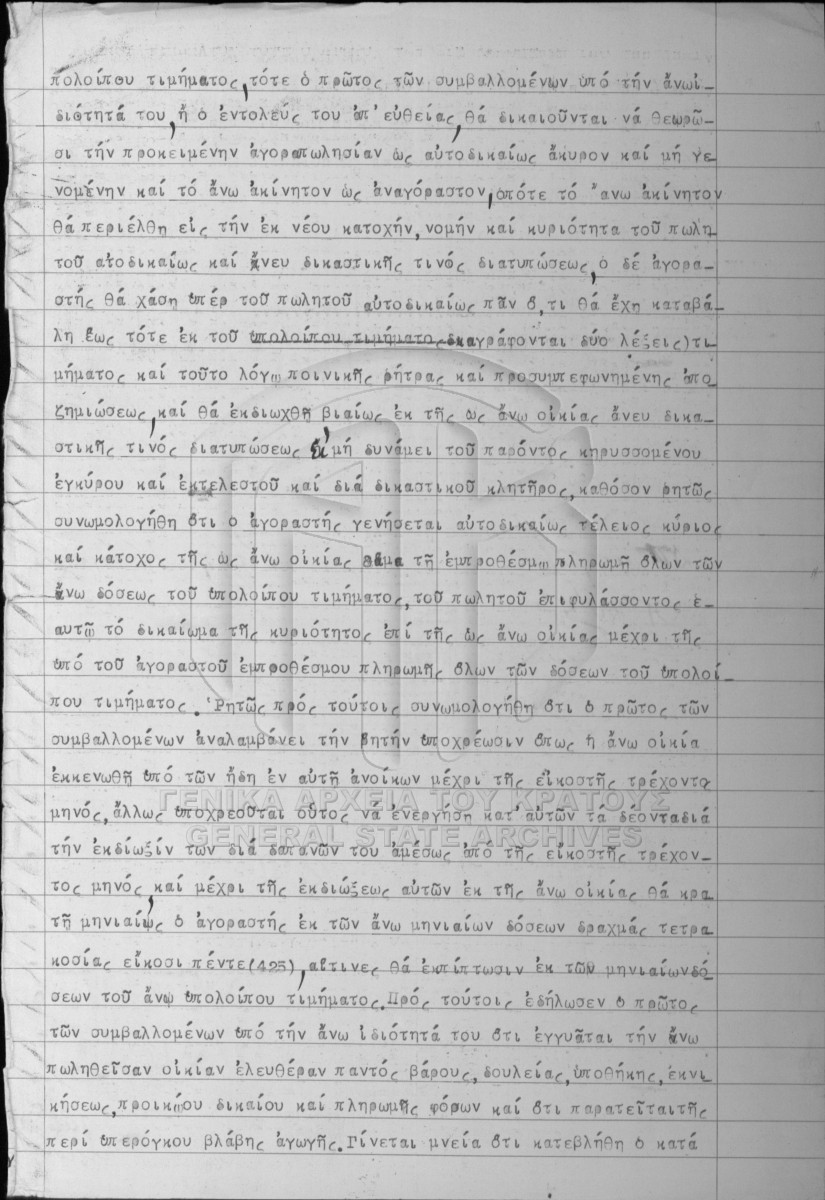 πολοίπου τιμήματος, τότε ὁ πρῶτος τῶν συμβαλλομένων ὑπό τήν ἄνωἰ
διότητά του, ἤ ὁ ἐντολεύς του ἀπ' εὐθείας, θά δικαιοῦνται νά θεωρῶ-
σι τήν προκειμένην ἀγοραπωλησίαν ὡς αὐτοδικαίως ἄκυρον καί μή γε
νομένην καί τό ἄνω ἀκίνητον ὡς ἀναγόραστον, ὁπότε τό ἄνω ἀκίνητον
θά περιέλθη εἰς τήν ἐκ νέου κατοχήν, νομήν καί κυριότητα τοῦ πωλη
τοῦ ατοδικαίως καί ἄνευ δικαστικῆς τινός διατυπώσεως, ὁ δέ ἀγορα-
στής θά χάση ὑπέρ τοῦ πωλητοῦ αὐτοδικαίως πᾶν ὅ,τι θά ἔχη καταβά-
λη ἕως τότε ἐκ τοῦ ὑπολοίπου τιμήματος διαγράφονται δύο λέξεις) τι
μήματος καί τοῦτο λόγῳ ποινικῆς ρήτρας καί προσυμπεφωνημένης ἀπο
ζημιώσεως, καί θά ἐκδιωχθῆ βιαίως ἐκ τῆς ὡς ἄνω οἰκίας ἄνευ δικα-
στικῆς τινός διατυπώσεως εἰ μή δυνάμει τοῦ παρόντος κηρυσσομένου
ἐγκύρου καί ἐκτελεστοῦ καί διά δικαστικοῦ κλητῆρος, καθόσον ρητῶς
συνωμολογήθη ὅτι ὁ ἀγοραστής γενήσεται αὐτοδικαίως τέλειος κύριος
καί κάτοχος τῆς ὡς ἄνω οἰκίας ἅμα τῆ ἐμπροθέσμῳ πληρωμῆ ὅλων τῶν
ἄνω δόσεως τοῦ ὑπολοίπου τιμήματος, τοῦ πωλητοῦ ἐπιφυλάσσοντος ἑ-
αυτῷ τό δικαίωμα τῆς κυριότητος ἐπί τῆς ὡς ἄνω οἰκίας μέχρι τῆς
ὑπό τοῦ ἀγοραστοῦ ἐμπροθέσμου πληρωμῆς ὅλων τῶν δόσεων τοῦ ὑπολοί-
που τιμήματος. Ῥητῶς πρός τούτοις συνωμολογήθη ὅτι ὁ πρῶτος τῶν
συμβαλλομένων ἀναλαμβάνει τήν ρητήν ὑποχρέωσιν ὅπως ἡ ἄνω οἰκία
ἐκκενωθῆ ὑπό τῶν ἤδη ἐν αὐτῆ ἀνοίκων μέχρι τῆς εἰκοστῆς τρέχοντο
μηνός, ἄλλως ὑποχρεοῦται οὗτος νά ἐνεργήση κατ' αὐτῶν τα δέονταδιά
ΓΕΝΙΚΑ ΑΡΧΕΙΑ ΤΟΥ ΚΡΑΤΟΥΣ
GENERAL STATE ARCHIVES
τήν ἐκδίωξίν των διά δαπανῶν του ἀμέσως ἀπό τῆς εἰκοστῆς τρέχον-
τος μηνός, καί μέχρι τῆς ἐκδιώξεως αὐτῶν ἐκ τῆς ἄνω οἰκίας θά κρα
τῆ μηνιαίως ὁ ἀγοραστής ἐκ τῶν ἄνω μηνιαίων δόσεων δραχμάς τετρα
κοσίας εἴκοσι πέντε(425), αἵτινες θά ἐκπίπτωσιν ἐκ τῶν μηνιαίωνδό
σεων τοῦ ἄνω ὑπολοίπου τιμήματος. Πρός τούτοις ἐδήλωσεν ὁ πρῶτος
τῶν συμβαλλομένων ὑπό τήν ἄνω ἰδιότητά του ὅτι ἐγγυᾶται τήν ἄνω
πωληθεῖσαν οἰκίαν ἐλευθέραν παντός βάρους, δουλείας, ὑποθήκης, ἐκνι
κήσεως, προικῴου δικαίου καί πληρωμῆς φόρων καί ὅτι παρατεῖταιτῆς
περί ὑπερόγκου βλάβης ἀγωγῆς. Γίνεται μνεία ὅτι κατεβλήθη ὁ κατά